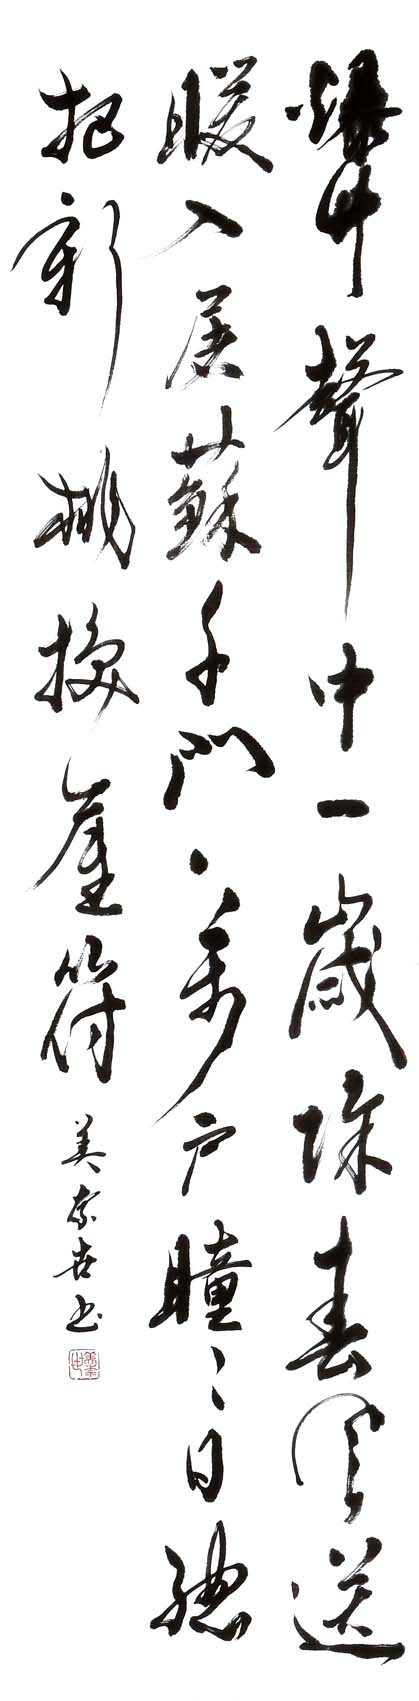 爆竹聲中一歲除春風送
暖入屠蘇千門萬戶曈〻日總
把新桃換舊符
美奈世書